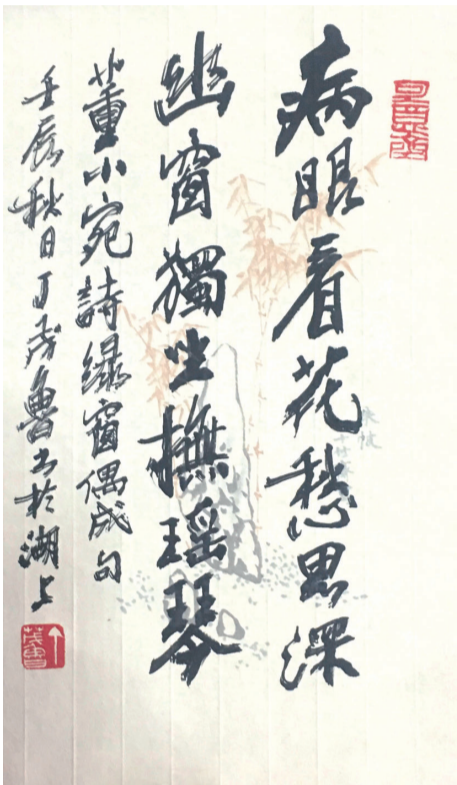 病眼看花愁思深
幽窗獨坐撫瑤琴
董小宛詩緑窗偶成句
壬辰秋日丁茂魯书於湖上
茂魯